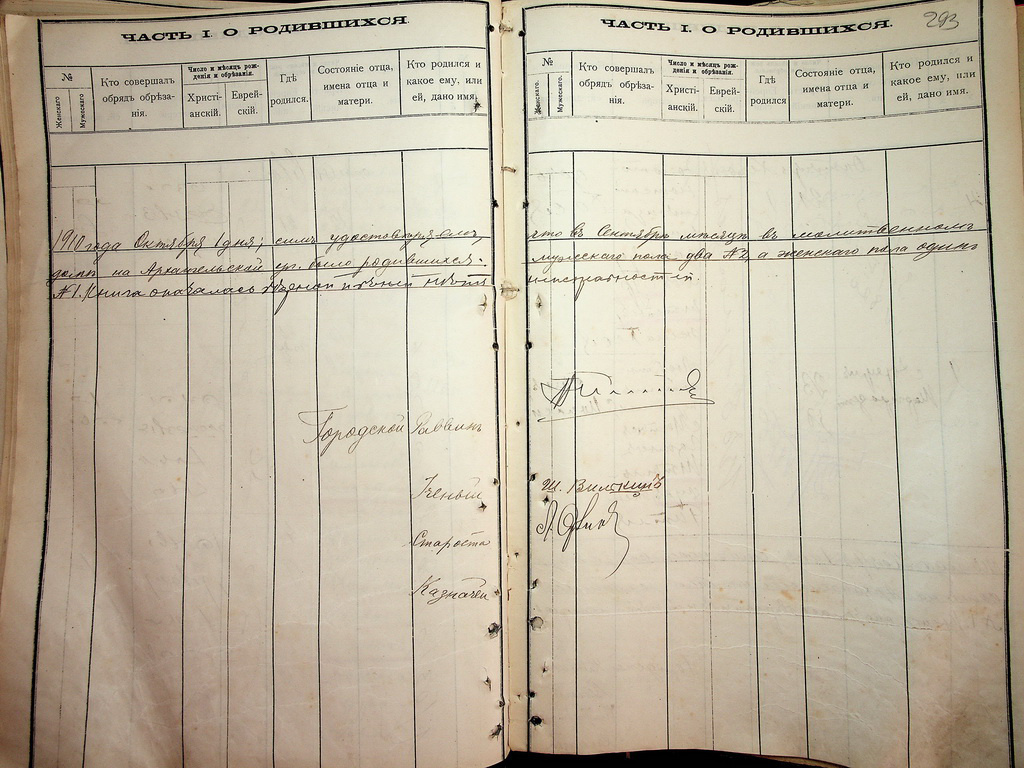 ЧАСТЬ I. О РОДИВШИХСЯ.
№
Женскаго
Мужескаго
Кто совершалъ
обрядъ обрѣза-
нія.
Число и мѣсяцъ рож-
денія и обрѣзанія.
Христі-
анскій.
Еврей-
скій.
Гдѣ
родился.
Состояніе отца,
имена отца и
матери.
Кто родился и
какое ему, или
ей, дано имя.
1910 года Октября 1 дня; симъ удостовѣряемъ,
домѣ на Архангельской ул. было родившихся
№ 1. Книга оказалась
Городской Раввинъ
Ученый
Староста
Казначей
293
ЧАСТЬ I. О РОДИВШИХСЯ.
№
Женскаго.
Мужескаго.
Кто совершалъ
обрядъ обрѣза-
нія.
Число и мѣсяцъ рож-
денія и обрѣзанія.
Христі-
анскій.
Еврей-
скій.
Гдѣ
родился
Состояніе отца,
имена отца и
матери.
Кто родился и
какое ему, или
ей, дано имя.
что въ Сентябрѣ мѣсяцѣ въ молитвенномъ
мужескаго пола два №2, а женскаго пола одинъ
неисправностей.
Ш. Вилкинъ